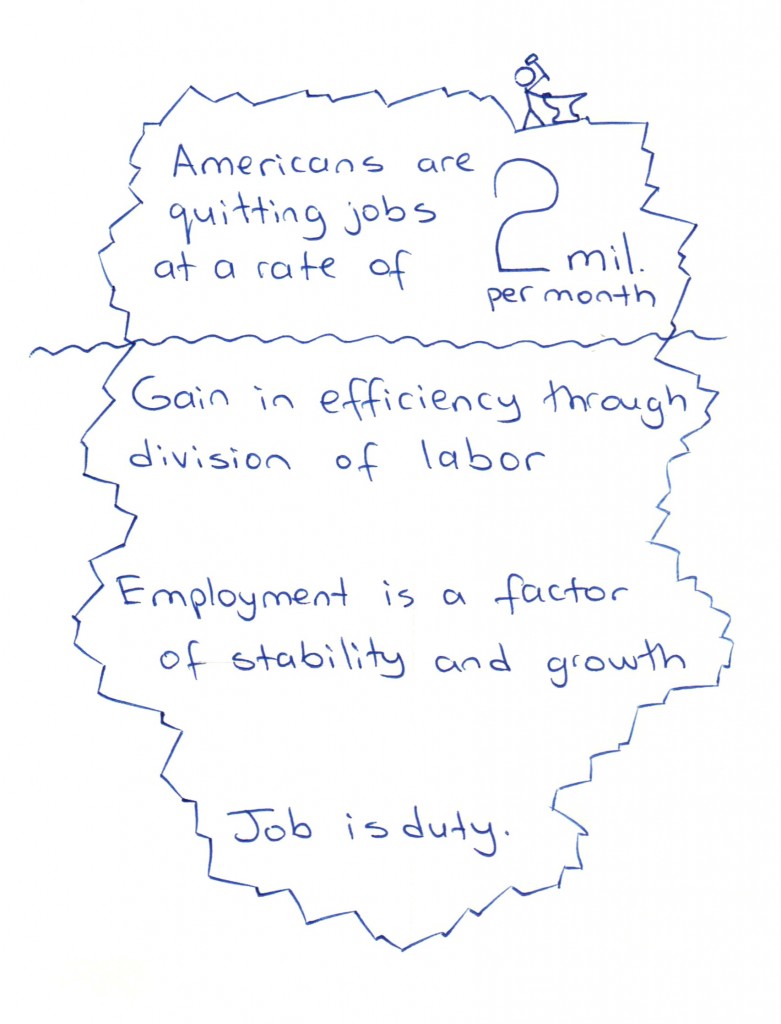 Americans are
quitting jobs
at a rate of 2 mil.
per month
Gain in efficiency through
division of labor
Employment is a factor
of stability and growth
Job is duty.